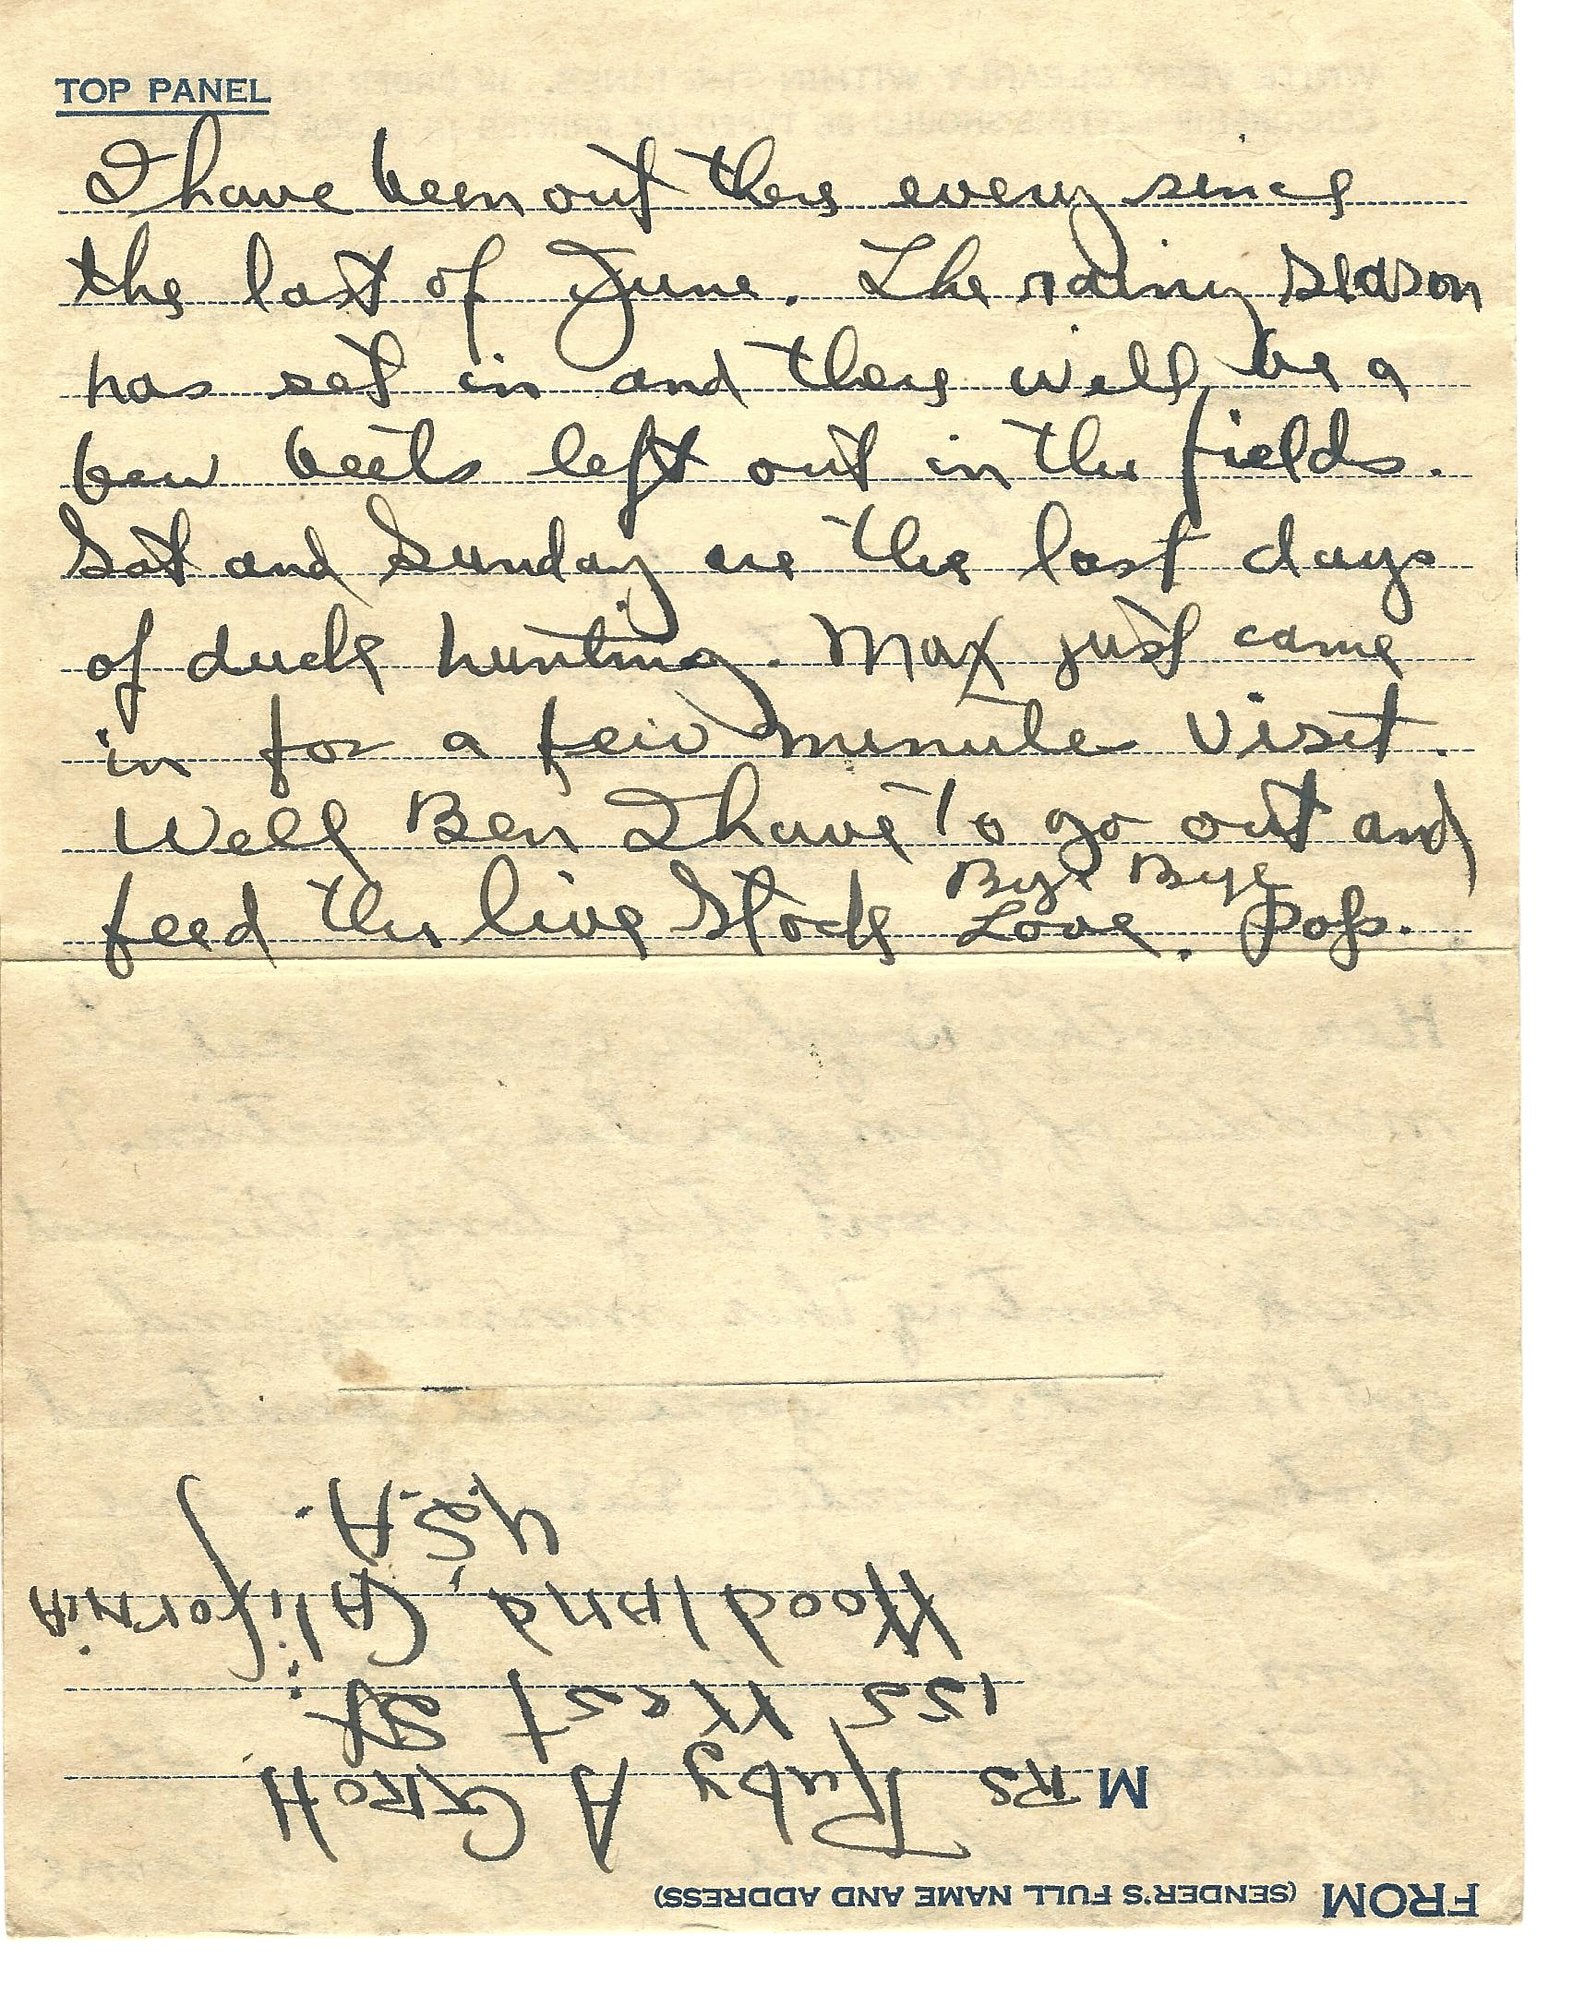 TOP PANEL
I have been out there every since
the last of June. The rainy season
has set in and there will be a
bew beets left out in the fields.
Sat and Sunday are the last days
of duck hunting. Max just came
in for a few minute visit.
Well Ben I have to go out and
feed the live stock Bye Bye
Love. Pops.
U.S.A.
Woodland, California
155 West St.
MRS Ruby A GROH
FROM (SENDER'S FULL NAME AND ADDRESS)